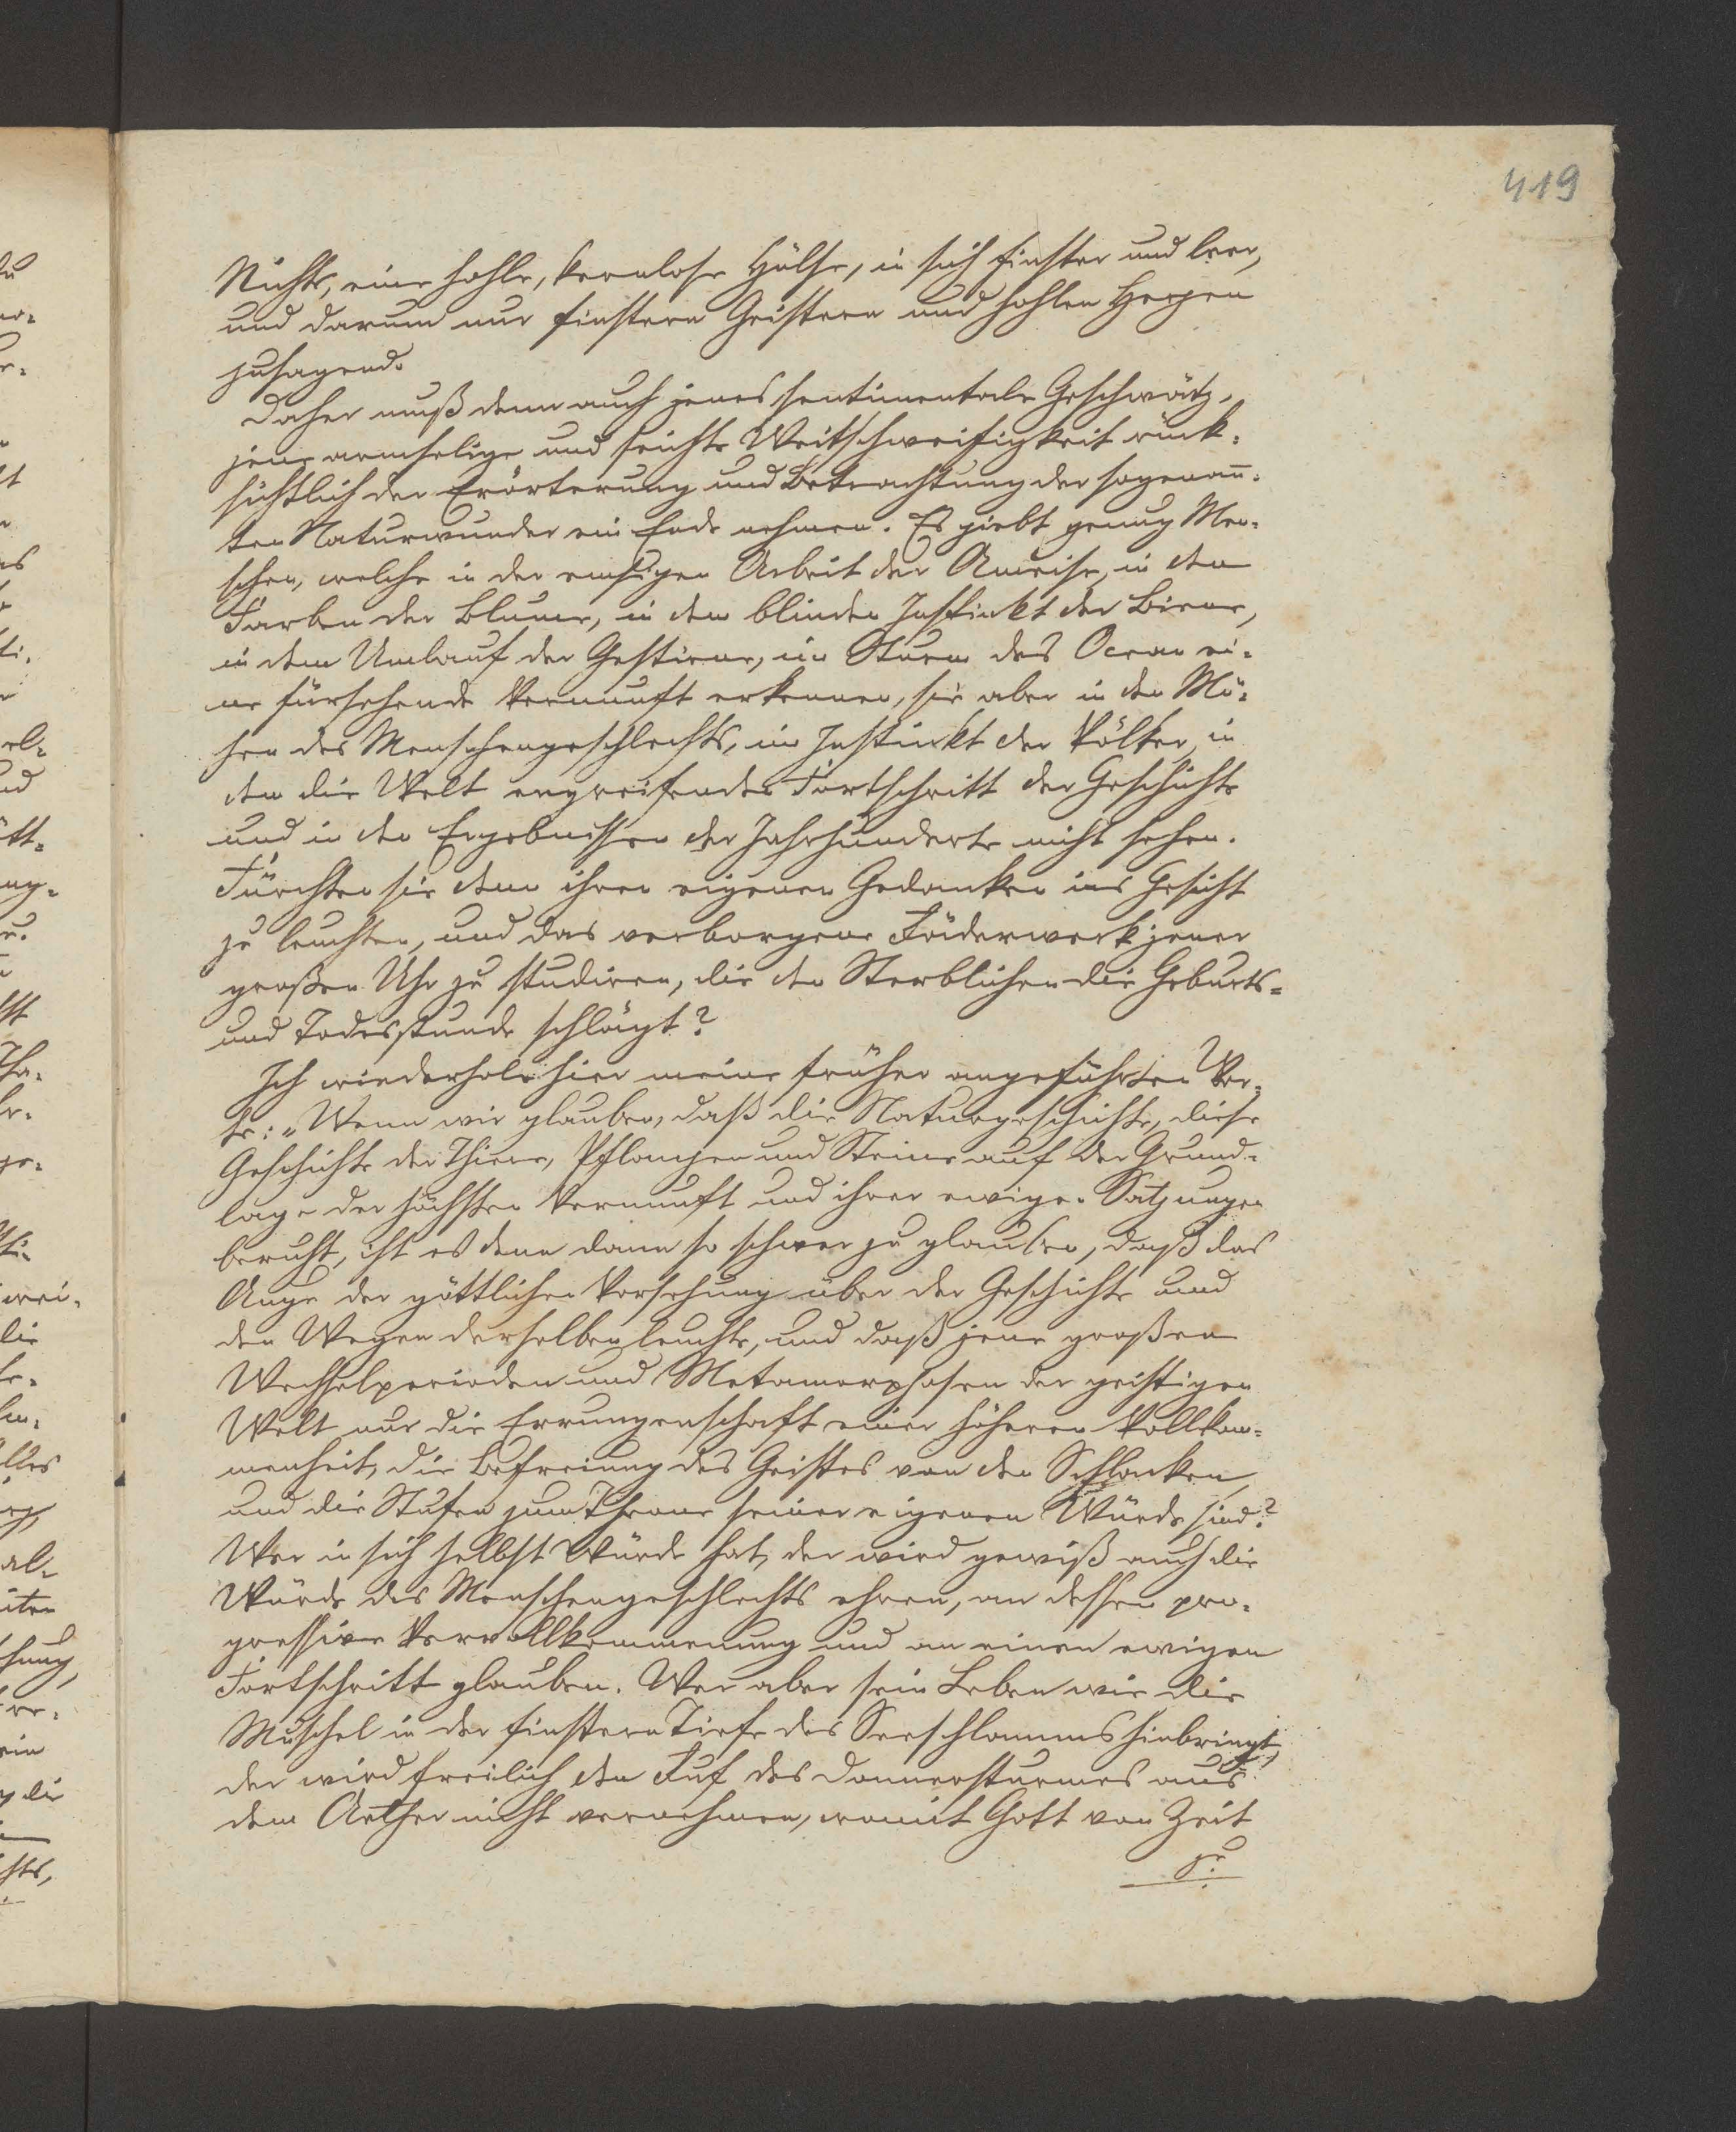 419
Nichts, eine hohle, kernlose Hülse, in sich finster und leer,
und darum nur finstern Geistern und hohlen Herzen
zusagend.
Daher muß denn auch jenes sentimentale Geschwätz,
jene armselige und seichte Weitschweifigkeit rück-
sichtlich der Erörterung und Betrachtung der sogenan̄-
ten Naturwunder ein Ende nehmen. Es giebt genug Men-
schen, welche in der emsigen Arbeit der Ameise, in den
Farben der Blume, in dem blinden Instinkt der Biene,
in dem Umlauf der Gestirne, im Sturm des Ocean ei-
ne fürsehende Vernunft erkennen, sie aber in den Mü-
hen des Menschengeschlechts, im Instinkt der Völker, in
dem die Welt ergreifenden Fortschritt der Geschichte
und in den Ergebnissen der Jahrhunderte nicht sehen.
Fürchten sie denn ihren eigenen Gedanken ins Gesicht
zu leuchten, und das verborgene Räderwerk jener
großen Uhr zu studiren, die den Sterblichen die Geburts-
und Todesstunde schlägt?
Ich wiederhole hier meine früher angeführten Wor-
te: „Wenn wir glauben, daß die Naturgeschichte, diese
Geschichte der Thiere, Pflanzen und Steine auf der Grund-
lage der höchsten Vernunft und ihrer ewigen Satzungen
beruht, ist es denn dann so schwer zu glauben, daß das
Auge der göttlichen Vorsehung über der Geschichte und
den Wegen derselben leuchte, und daß jene großen
Wechselperioden und Metamorphosen der geistigen
Welt nur die Errungenschaft einer höheren Vollkom-
menheit, die Befreiung des Geistes von den Schlacken,
und die Stufen zum Throne seiner eigenen Würde sind?
Wer in sich selbst Würde hat, der wird gewiß auch die
Würde des Menschengeschlechts ehren, an dessen pro-
gressive Vervollkommenung und an einen ewigen
Fortschritt glauben. Wer aber sein Leben wie die
Muschel in der finstern Tiefe des Seeschlamms hinbringt,
der wird freilich den Ruf des Donnersturmes aus
dem Aether nicht vernehmen, womit Gott von Zeit
zu